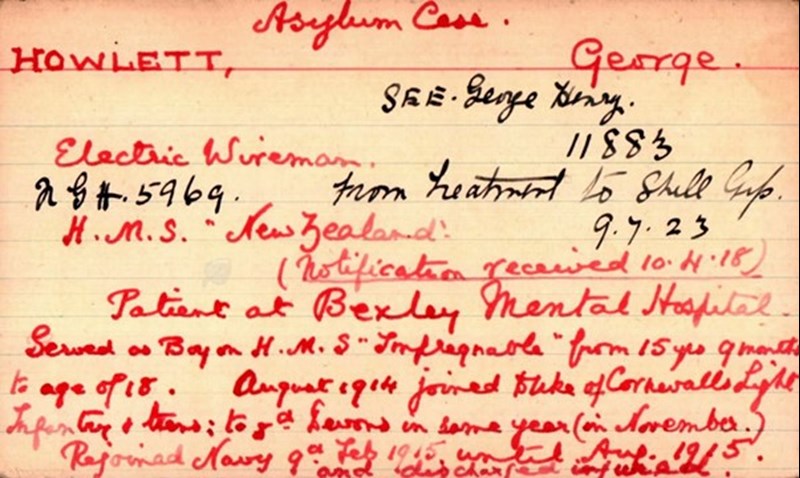 Asylum Case.
HOWLETT, George.
SEE. George Henry.
11883
Electric Wireman.
N G H. 5969. From Treatment to Shell Grp.
H.M.S. "New Zealand". 9.7.23
(Notification received 10.4.18)
Patient at Bexley Mental Hospital.
Served as Boy on H.M.S "Impregnable" from 15 yrs 9 months
to age of 18. August 1914 joined Duke of Cornwalls Light
Infantry & then; to Devons in same year (in November.)
Rejoined Navy Feb 1915 until Aug. 1915.
and discharged injured.